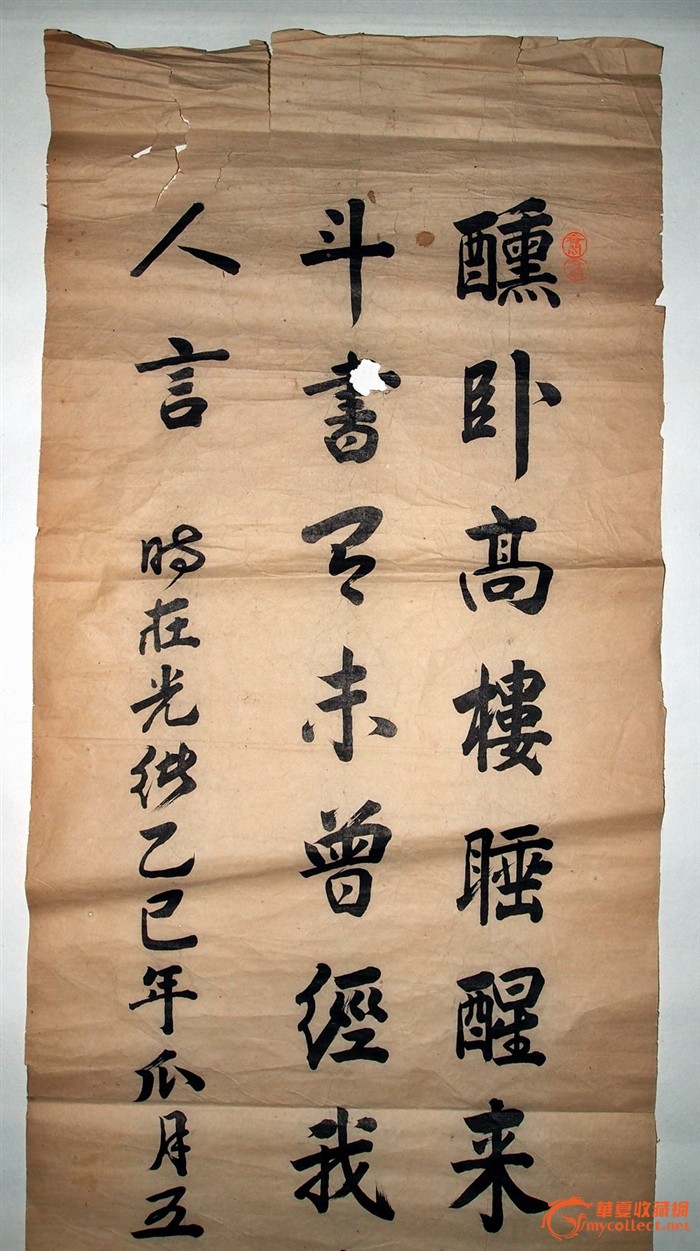 醺卧高樓睡醒来
斗書了未曾經我
人言
時在光緒乙巳年瓜月五
華夏收藏網
mycollect.net